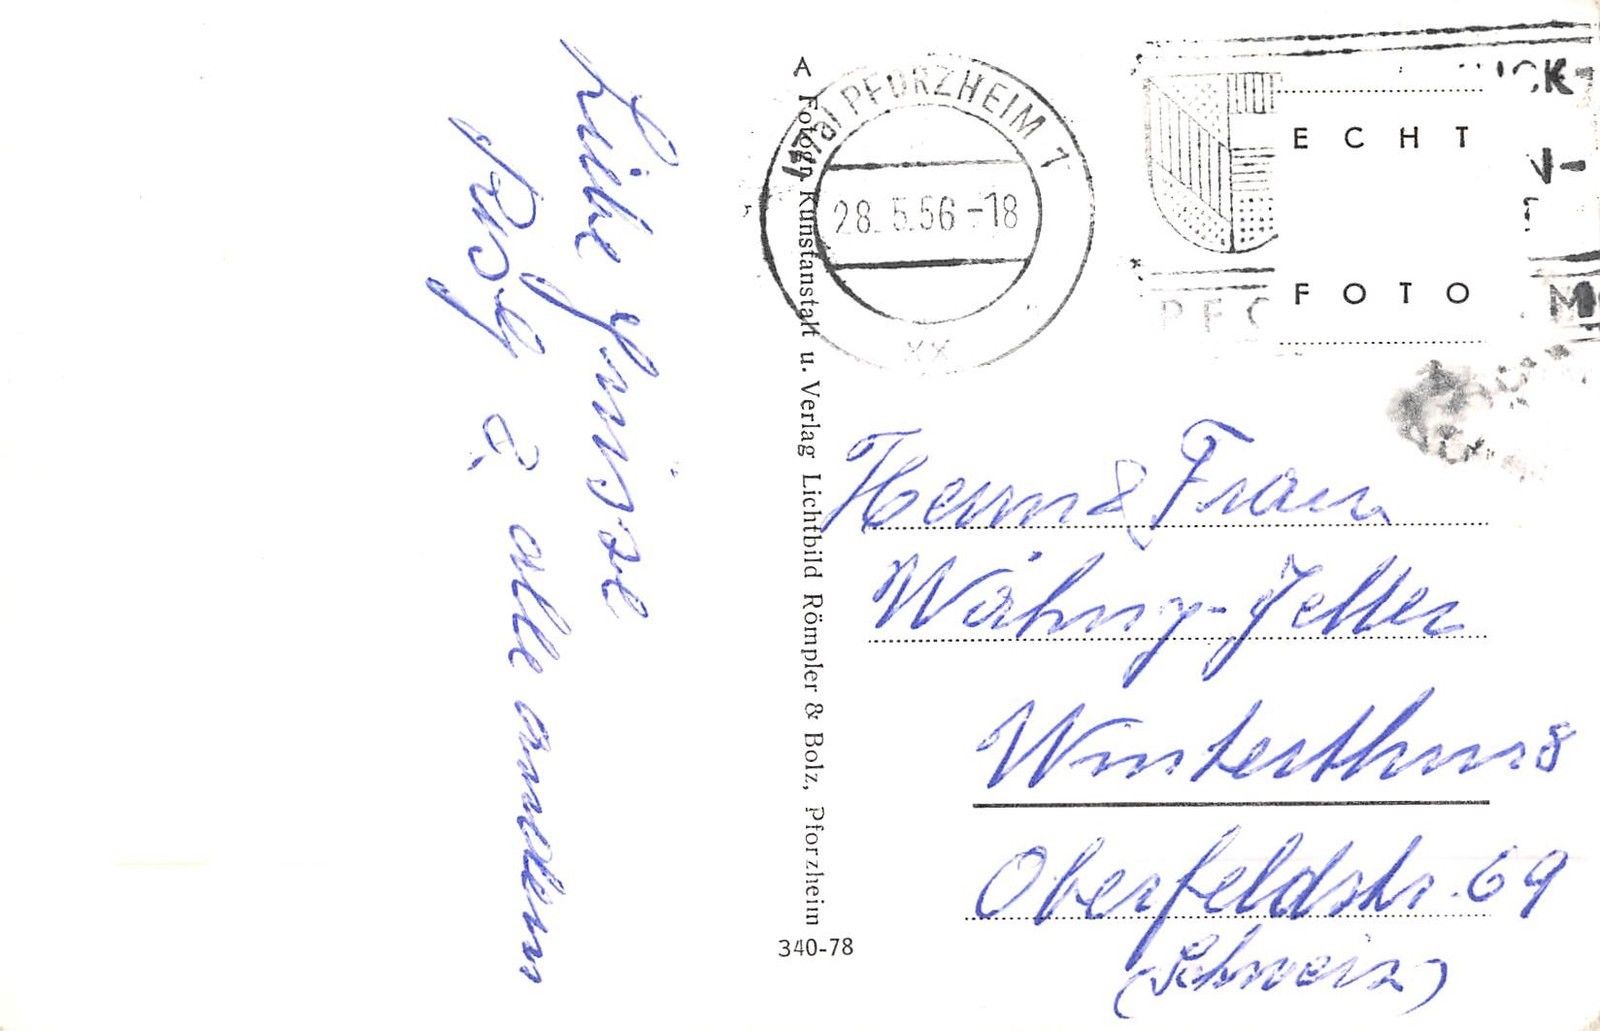 Liebe Grüsse
Rösly & alle andern
A Fotogr. Kunstanstalt u. Verlag Lichtbild Römpler & Bolz, Pforzheim
340-78
(17a) PFORZHEIM 1
28.5.56-18
xx
ECHT
FOTO
Herrn & Frau
Winterthur 8
Oberfeldstr. 69
(Schweiz)